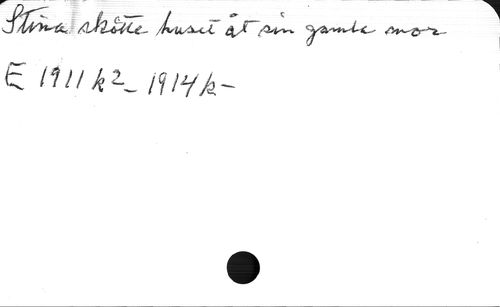 Stina skötte huset åt sin gamla mor
E 1911 k2 - 1914 k -